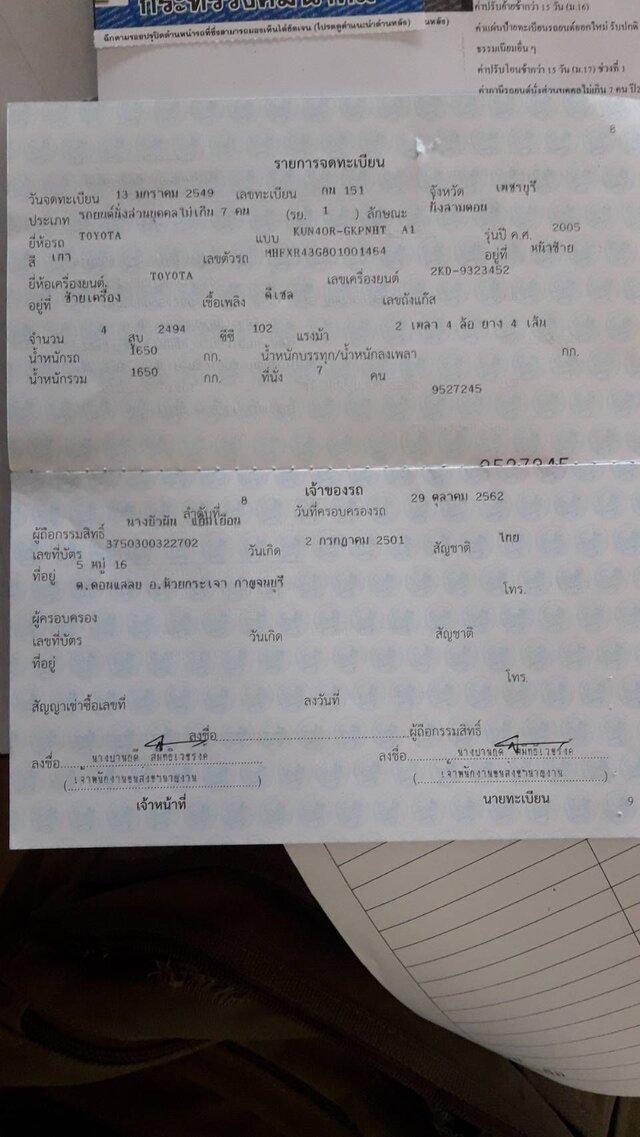 ฉีกตามรอยปรุปิดด้านหน้ารถที่ซึ่งสามารถมองเห็นได้ชัดเจน (โปรดดูคำแนะนำด้านหลัง)
ค่าปรับย้ายช้ากว่า 15 วัน (ม.16)
ค่าแผ่นป้ายทะเบียนรถยนต์ออกใหม่ รับปกติ
ธรรมเนียมอื่น ๆ
ค่าปรับโอนช้ากว่า 15 วัน (ม.17) ช่วงที่ 1
ค่าภาษีรถยนต์นั่งส่วนบุคคลไม่เกิน 7 คน ปี2
8
รายการจดทะเบียน
วันจดทะเบียน 13 มกราคม 2549 เลขทะเบียน กน 151 จังหวัด เพชรบุรี
ประเภท รถยนต์นั่งส่วนบุคคลไม่เกิน 7 คน (รย. 1 ) ลักษณะ นั่งสามตอน
ยี่ห้อรถ TOYOTA แบบ KUN40R-GKPNHT A1 รุ่นปี ค.ศ. 2005
สี เทา เลขตัวรถ MHFXR43G801001464 อยู่ที่ หน้าซ้าย
ยี่ห้อเครื่องยนต์ TOYOTA เลขเครื่องยนต์ 2KD-9323452
อยู่ที่ ซ้ายเครื่อง เชื้อเพลิง ดีเซล เลขถังแก๊ส
จำนวน 4 สูบ 2494 ซีซี 102 แรงม้า 2 เพลา 4 ล้อ ยาง 4 เส้น
น้ำหนักรถ 1650 กก. น้ำหนักบรรทุก/น้ำหนักลงเพลา กก.
น้ำหนักรวม 1650 กก. ที่นั่ง 7 คน
9527245
9527245
เจ้าของรถ
ลำดับที่ 8 วันที่ครอบครองรถ 29 ตุลาคม 2562
ผู้ถือกรรมสิทธิ์ นางบัวผัน แย้มเยื้อน
เลขที่บัตร 3750300322702 วันเกิด 2 กรกฎาคม 2501 สัญชาติ ไทย
ที่อยู่ 5 หมู่ 16
ต.ดอนแสลบ อ.ห้วยกระเจา กาญจนบุรี โทร.
ผู้ครอบครอง
เลขที่บัตร วันเกิด สัญชาติ
ที่อยู่
โทร.
สัญญาเช่าซื้อเลขที่ ลงวันที่
ลงชื่อ ผู้ถือกรรมสิทธิ์
ลงชื่อ ลงชื่อ
(เจ้าพนักงานขนส่งชำนาญงาน) (เจ้าพนักงานขนส่งชำนาญงาน)
เจ้าหน้าที่ นายทะเบียน
9